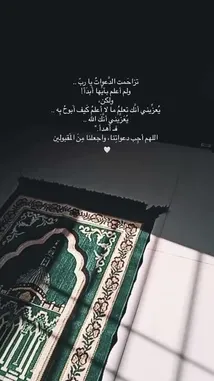 تزاحمت الدَّعواتُ يا ربّ ..
ولم أعلم بأيِّها أبدَأ !
ولكن،
يُعزِّيني أنَّك تعلمُ ما لا أعلمُ كيفَ أبوحُ بِه ..
يُعزِّيني أنَّك الله ..
فـ أهدأ."
اللهم أجِب دعواتِنا، واجعلنا مِنَ المَقبولين
🤍